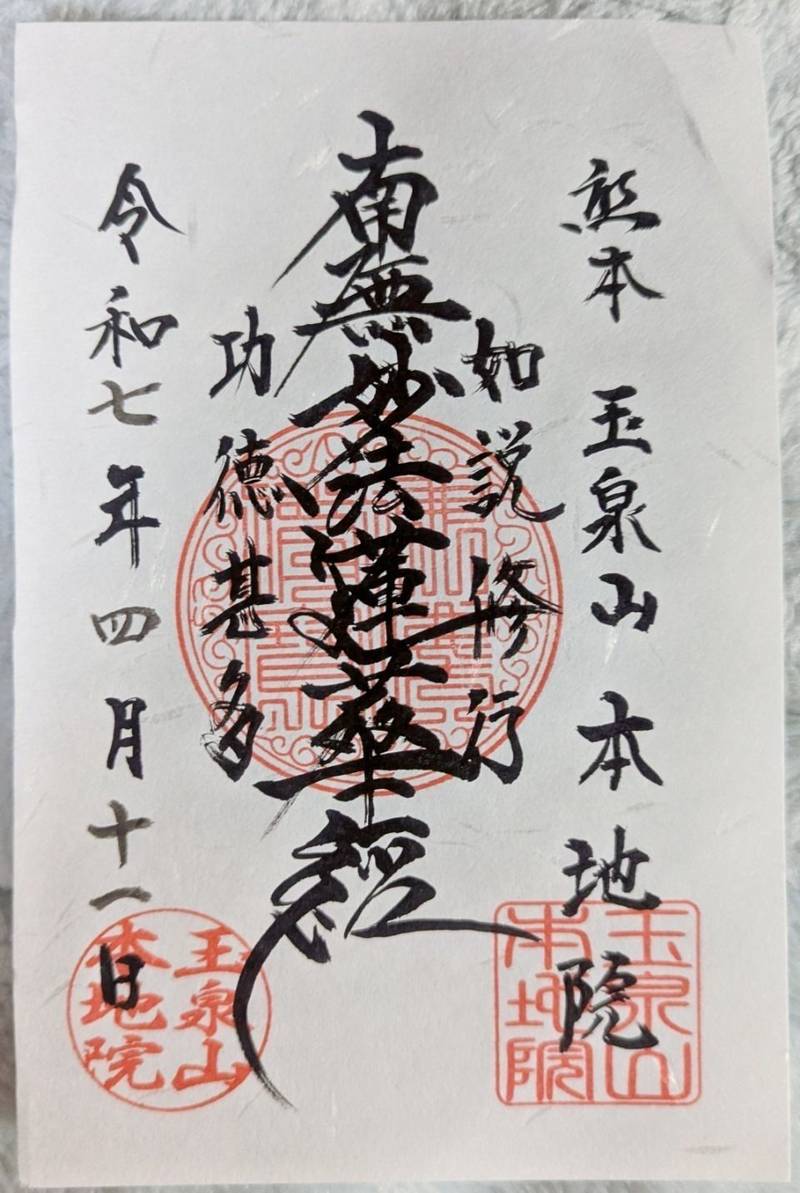 熊本 玉泉山 本地院
如説修行
南無妙法蓮華経
功徳甚多
令和七年四月十一日
玉泉山
本地院
玉泉山
本地院